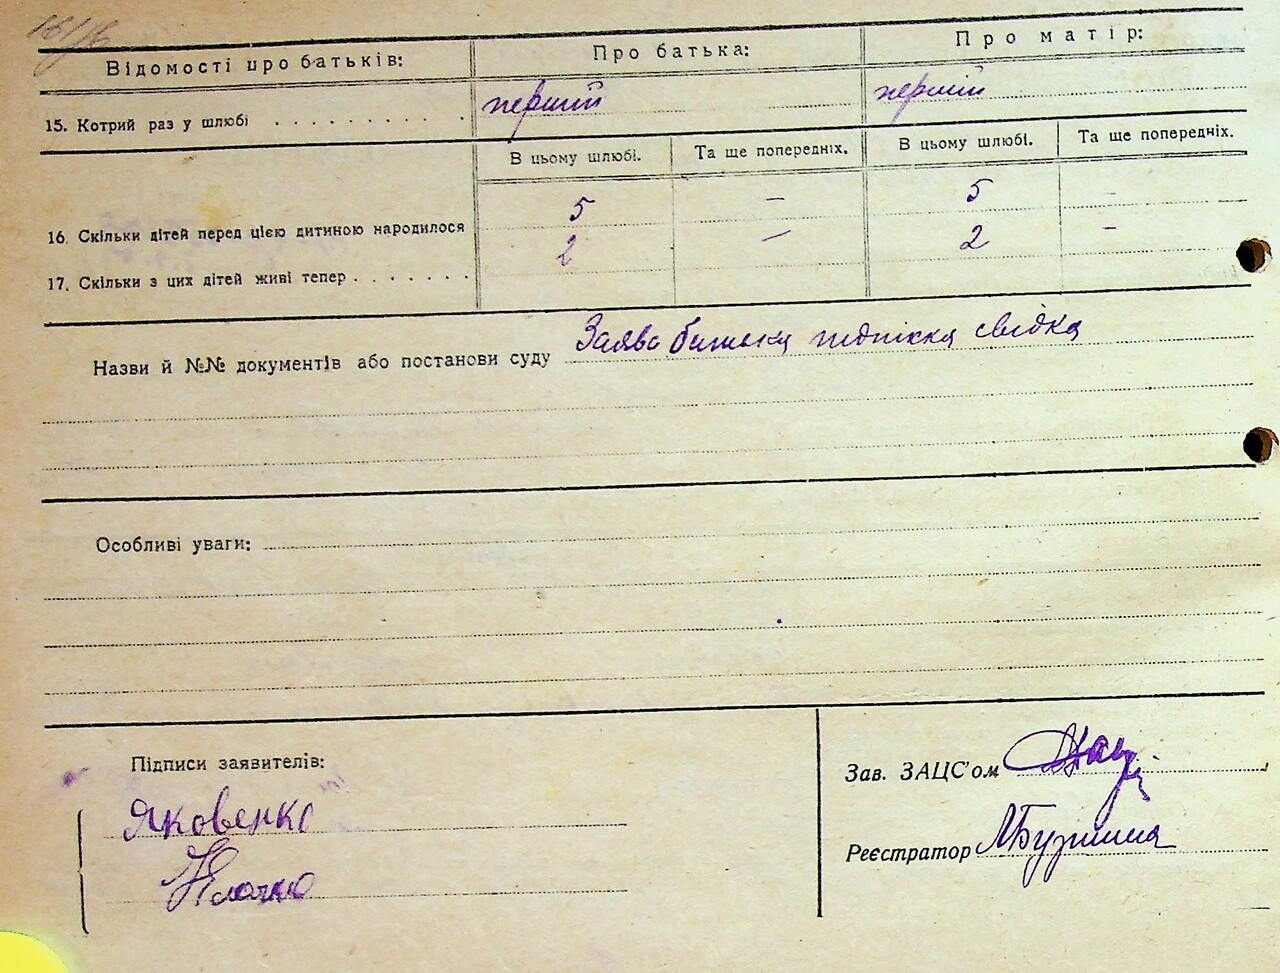 161/16
Відомості про батьків: Про батька: Про матір:
15. Котрий раз у шлюбі . . . . . . . . . . перший перший
В цьому шлюбі. Та ще попередніх. В цьому шлюбі. Та ще попередніх.
16. Скільки дітей перед цією дитиною народилося 5 — 5 —
17. Скільки з цих дітей живі тепер . . . . . . . 2 — 2 —
Назви й №№ документів або постанови суду Заява батька підписка свідка
Особливі уваги:
Підписи заявителів:
Зав. ЗАЦС'ом
Яковенко
Реєстратор